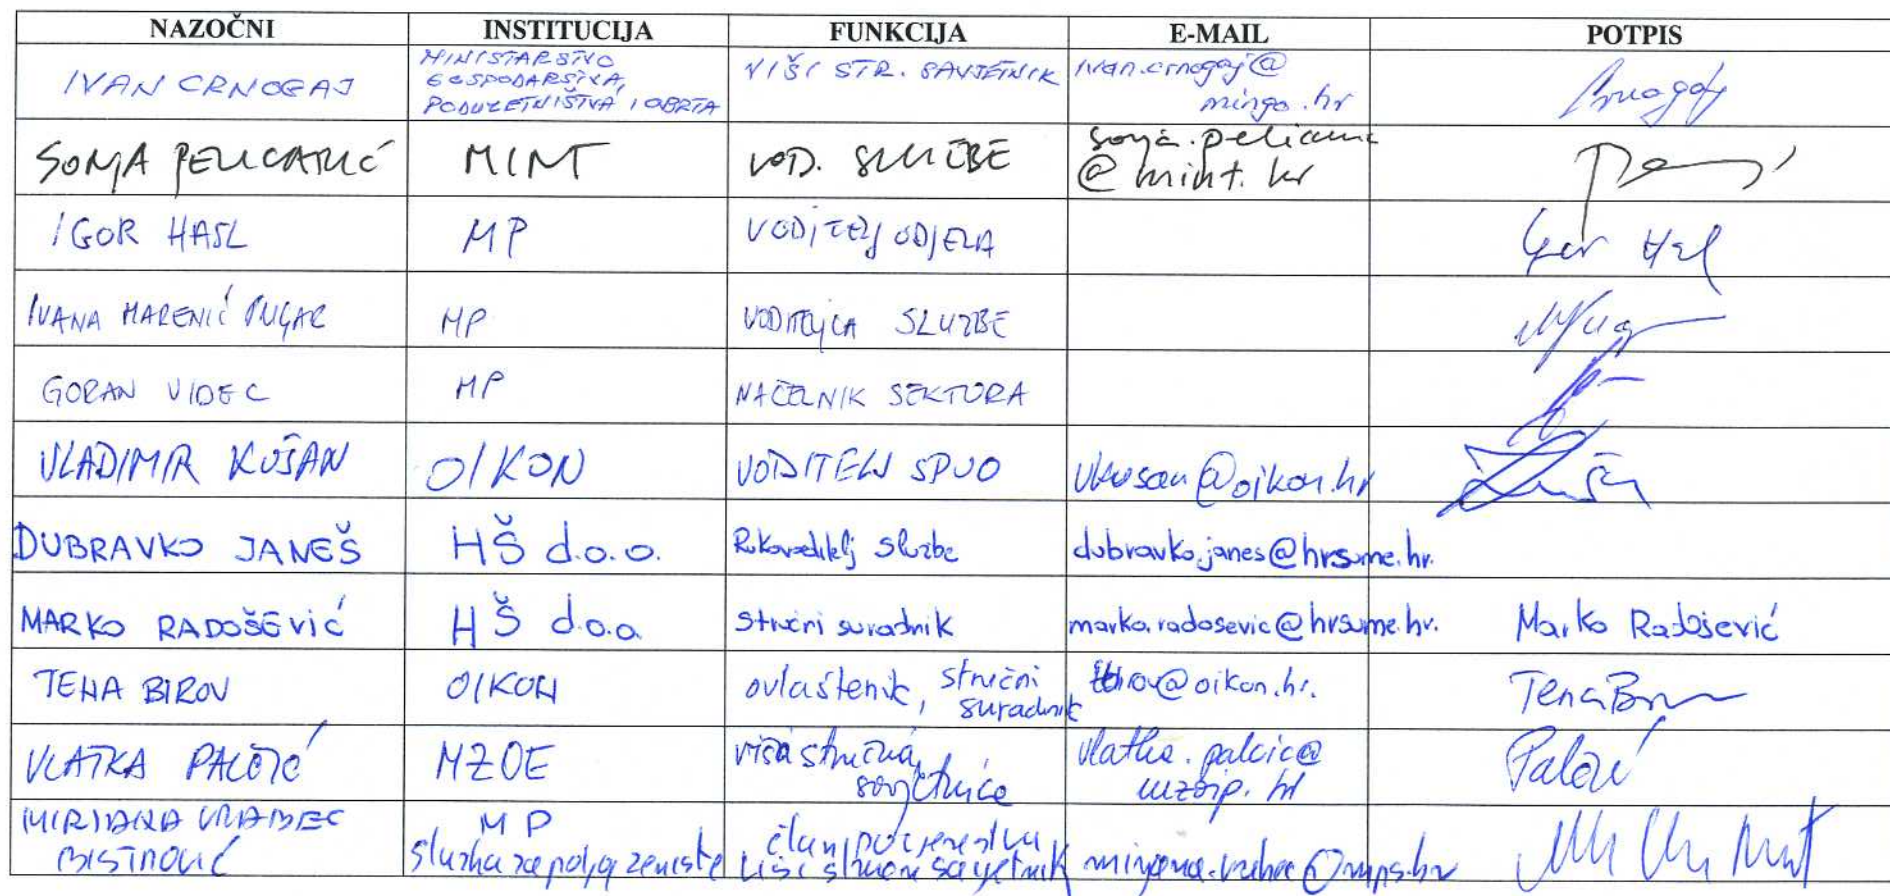 NAZOČNI INSTITUCIJA FUNKCIJA E-MAIL POTPIS
IVAN CRNOGAJ MINISTARSTVO GOSPODARSTVA, PODUZETNIŠTVA I OBRTA VIŠI STR. SAVJETNIK ivan.crnogaj@mingo.hr Crnogaj
SONJA PELICARIĆ MINT VOD. SLUŽBE @mint.hr
IGOR HASL MP VODITELJ ODJELA Igor Hasl
IVANA MARENIĆ PUGAR MP VODITELJICA SLUŽBE
GORAN VIDEC MP NAČELNIK SEKTORA
VLADIMIR KUŠAN OIKON VODITELJ SPUO vkusan@oikon.hr
DUBRAVKO JANEŠ HŠ d.o.o. Rukovoditelj službe dubravko.janes@hrsume.hr.
MARKO RADOŠEVIĆ HŠ d.o.o. stručni suradnik marko.radosevic@hrsume.hr. Marko Radošević
TENA BIROV OIKON ovlaštenik, stručni suradnik @oikon.hr. Tena
VLATKA PALČIĆ MZOE viša stručna savjetnica vlatka.palcic@mzoip.hr Palčić
MIRJANA VRABEC BISTROVIĆ MP služba za polj. zemljište član povjerenstva viši stručni savjetnik mirjana.vrabec@mps.hr